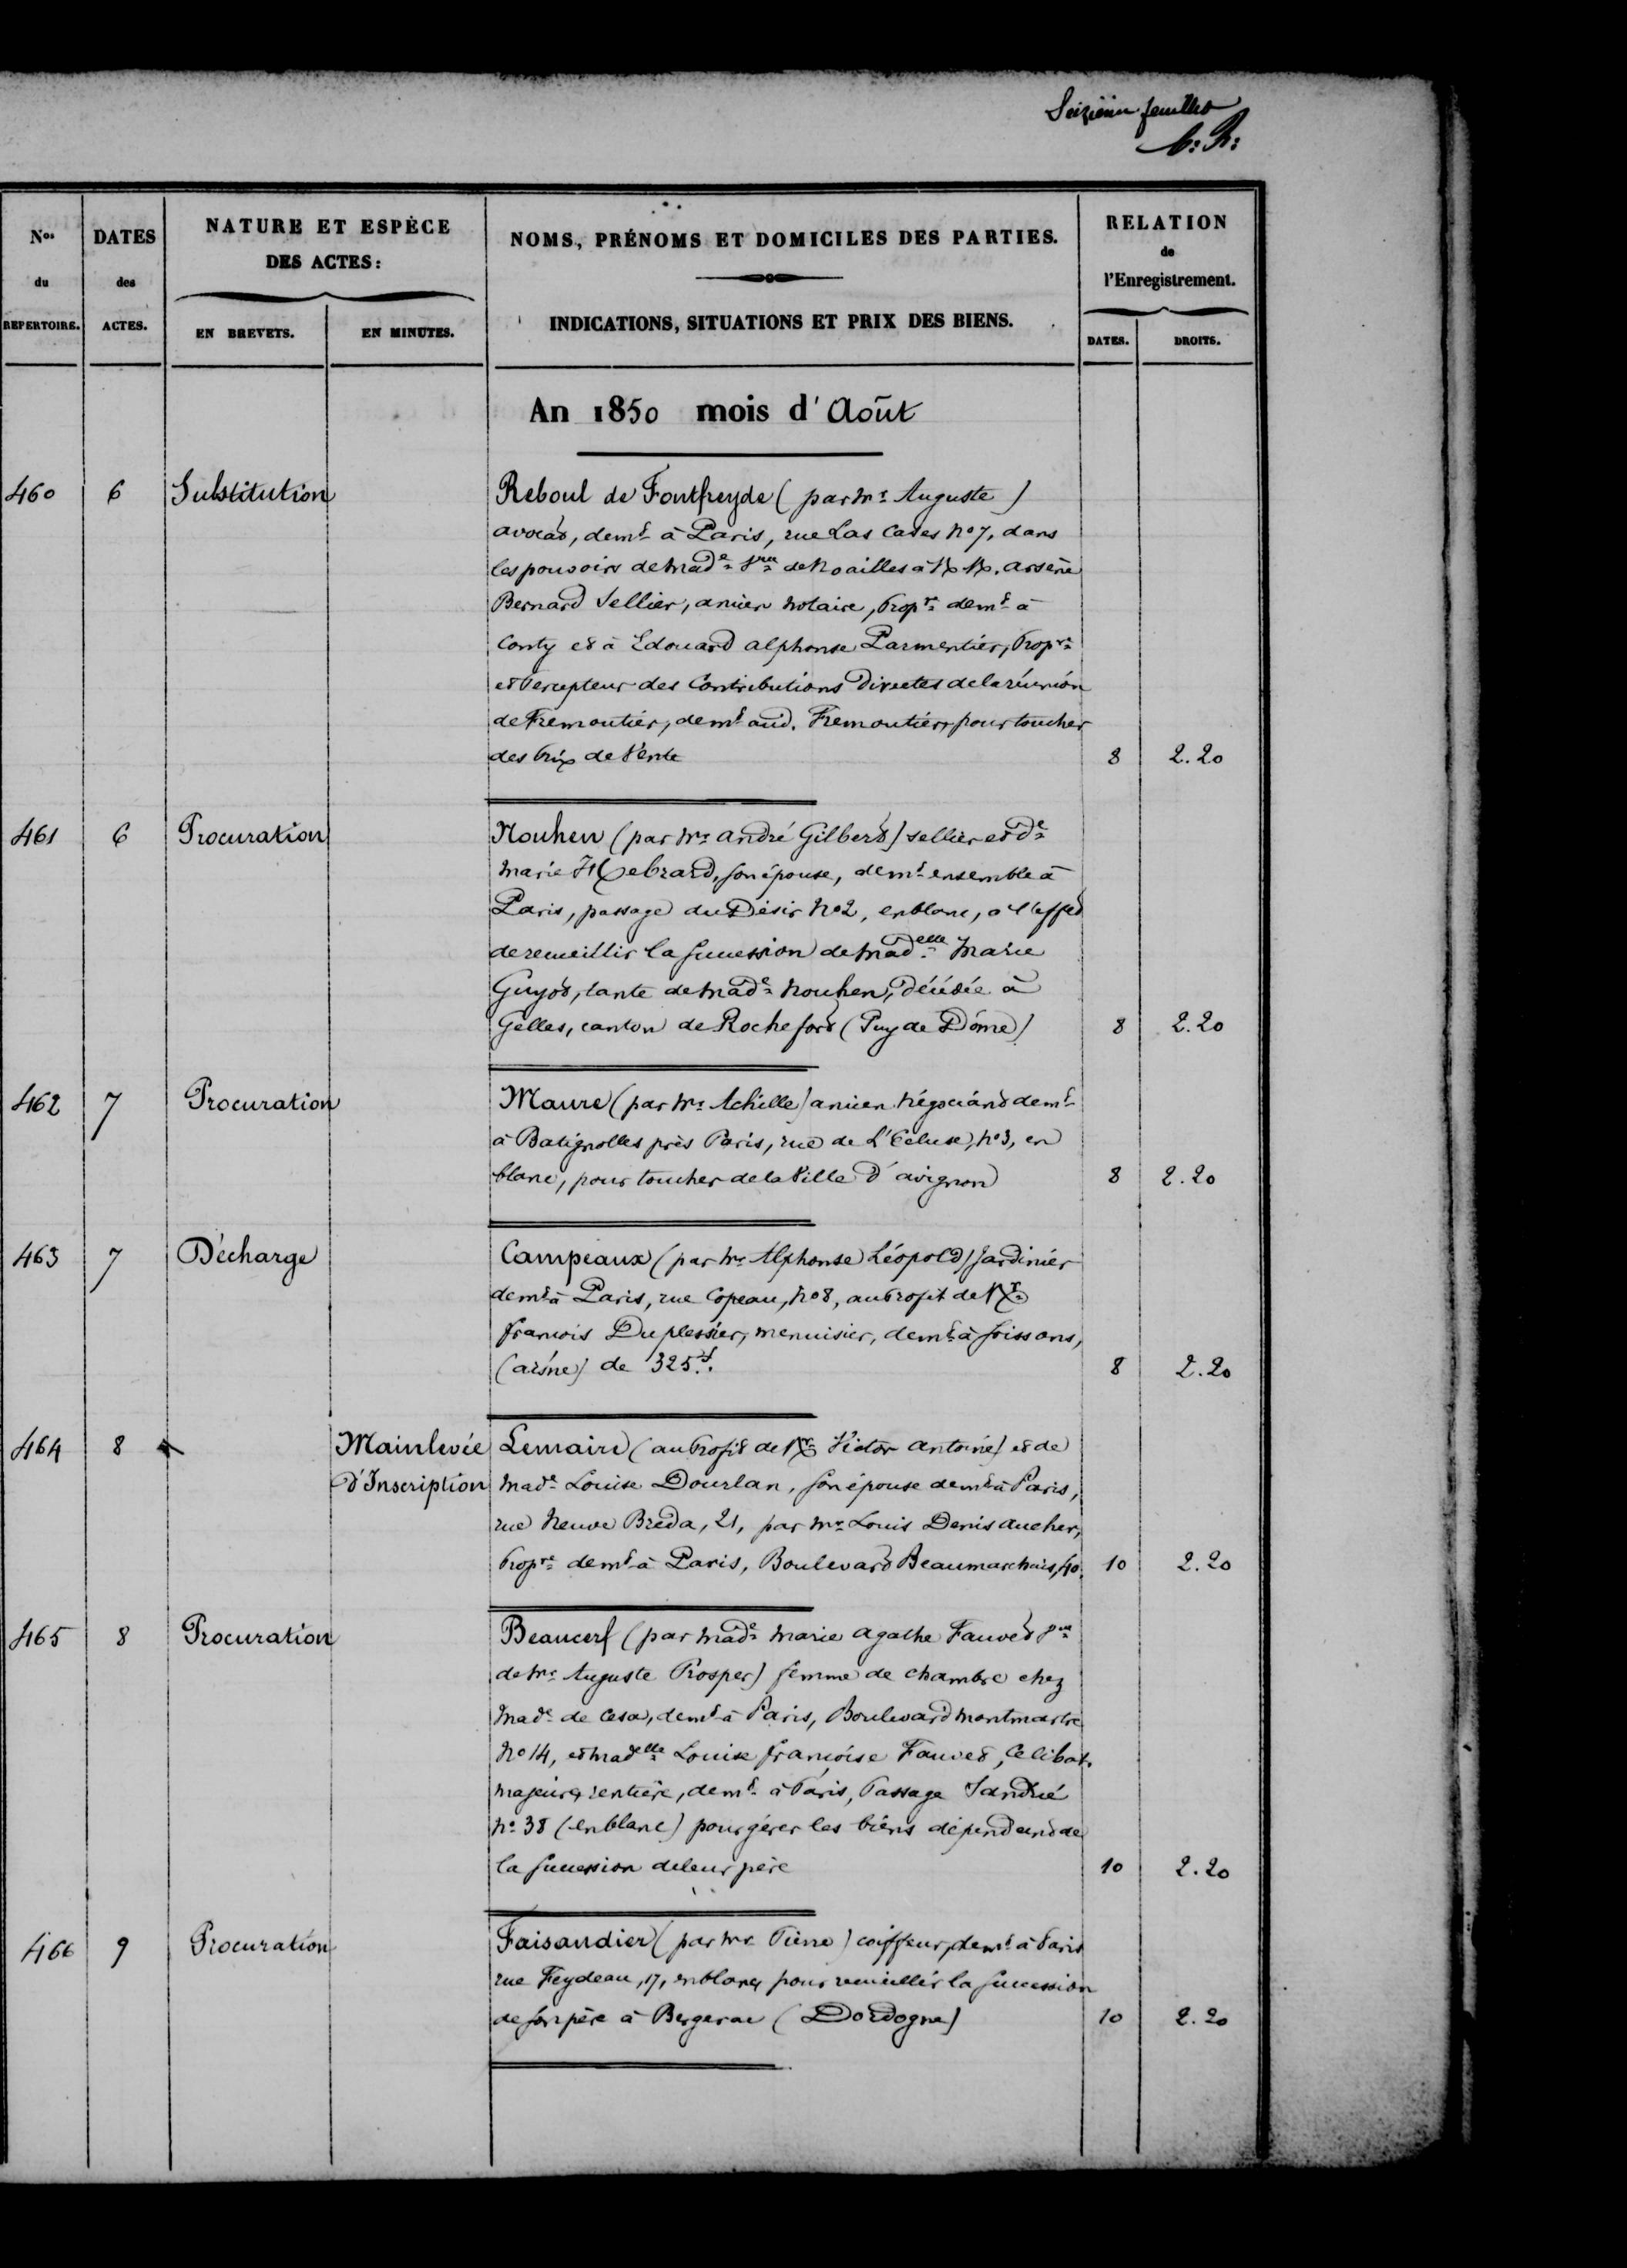 Seizième feuillet
N.os du REPERTOIRE.
DATES des ACTES.
NATURE ET ESPÈCE DES ACTES:
EN BREVETS.
EN MINUTES.
NOMS, PRÉNOMS ET DOMICILES DES PARTIES.
INDICATIONS, SITUATIONS ET PRIX DES BIENS.
RELATION de l'Enregistrement.
DATES.
DROITS.
An 1850 mois d'Août
460 6 Substitution Reboul de Fontfreyde (par Mr Auguste)
avocat, demt à Paris, rue Las Cases No 7, dans
les pouvoirs de Made Vve de Noailles à MM. arsène
Bernard Sellier, ancien Notaire, Propre demt à
Conty et à Edouard alphonse Parmentier, Propre
et Percepteur des Contributions Directes de la réunion
de Fremoutier, demt aud. Fremoutier, pour toucher
des Prix de Vente 8 2.20
461 6 Procuration Nouhen (par Mr andré Gilbert) sellier et De
Marie Hebrard, son épouse, demt ensemble à
Paris, passage du Désir No 2, en blanc, à l'effet
de recueillir la Succession de Madelle Marie
Guyot, tante de Made Nouhen, décédée à
Gelles, canton de Rochefort (Puy de Dôme) 8 2.20
462 7 Procuration Maure (par Mr Achille) ancien Négociant demt
à Batignolles près Paris, rue de L'Ecluse, No 3, en
blanc, pour toucher de la Ville d'avignon 8 2.20
463 7 Décharge Campeaux (par Mr Alphonse Léopold) Jardinier
demt à Paris, rue Copeau, No 8, au Profit de Mr
françois Duplessier, menuisier, demt à Soissons,
(aisne) de 325f. 8 2.20
464 8 Mainlevée Lemaire (au Profit de Mr Victor antoine) et de
d'Inscription Made Louise Dourlan, son épouse demt à Paris,
rue Neuve Breda, 21, par Mr Louis Denis aucher,
Propre demt à Paris, Boulevard Beaumarchais, 40. 10 2.20
465 8 Procuration Beaucerf (par Made Marie agathe Fauvet Vve
de Mr Auguste Prosper) femme de chambre chez
Made de Cesa, demt à Paris, Boulevard Montmartre
No 14, et Madelle Louise françoise Fauvet, Celibat.
majeure, rentière, demt à Paris, Passage Sandrié
No 38 (en blanc) pour gérer les biens dépendant de
la Succession de leur père 10 2.20
466 9 Procuration Faisandier (par Mr Pierre) coiffeur, demt à Paris
rue Feydeau, 17, en blanc, pour recueillir la Succession
de son père à Bergerac (Dordogne) 10 2.20